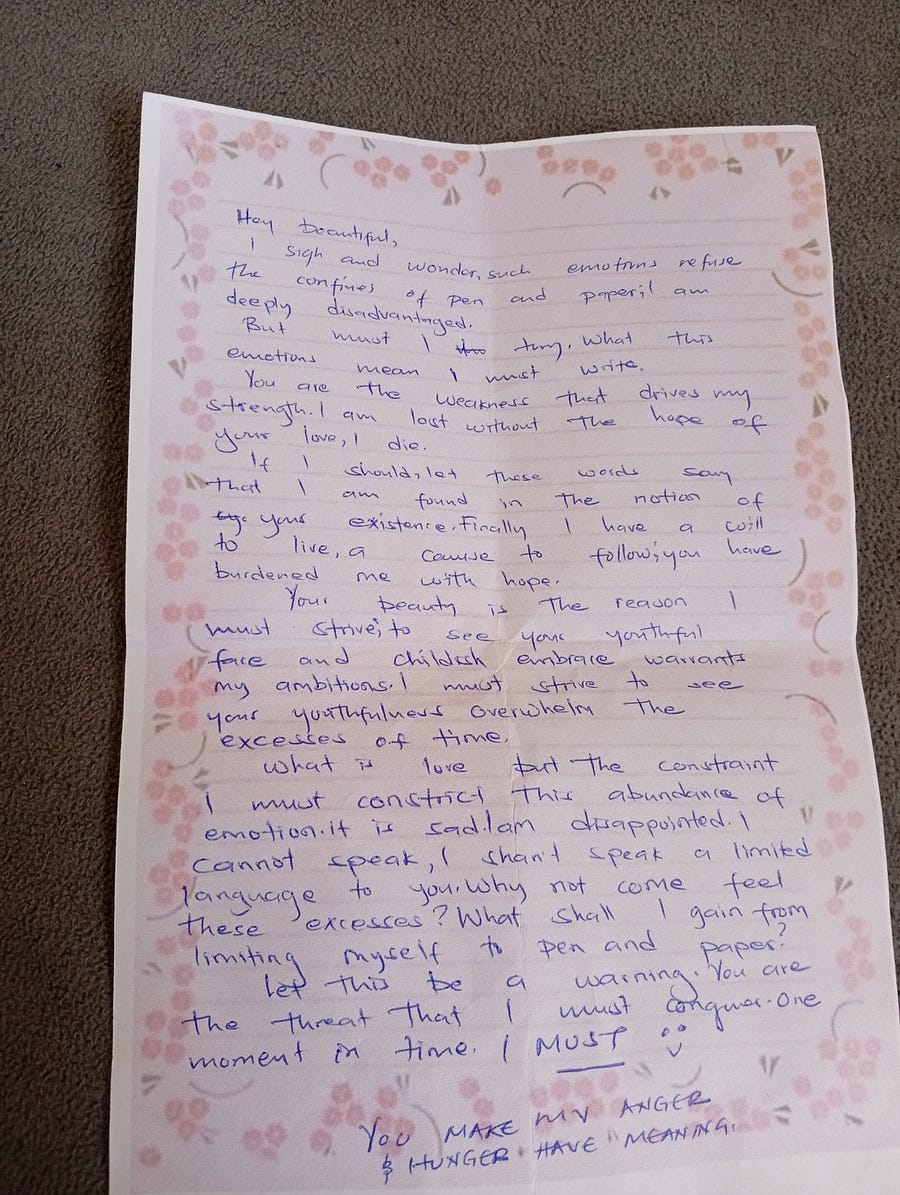 Hey beautiful,
I sigh and wonder, such emotions refuse
the confines of pen and paper; I am
deeply disadvantaged.
But must I try. What this
emotions mean I must write.
You are the weakness that drives my
strength. I am lost without the hope of
your love, I die.
If I should, let these words say
that I am found in the notion of
your existence. Finally I have a will
to live, a cause to follow; you have
burdened me with hope.
Your beauty is the reason I
must strive; to see your youthful
face and childish embrace warrants
my ambitions. I must strive to see
your youthfulness overwhelm the
excesses of time.
What is love but the constraint
I must constrict this abundance of
emotion. it is sad. I am disappointed. I
cannot speak, I shan't speak a limited
language to you. Why not come feel
these excesses? What shall I gain from
limiting myself to pen and paper?
Let this be a warning. You are
the threat that I must conquer. One
moment in time. I MUST
YOU MAKE MY ANGER
& HUNGER HAVE MEANING.